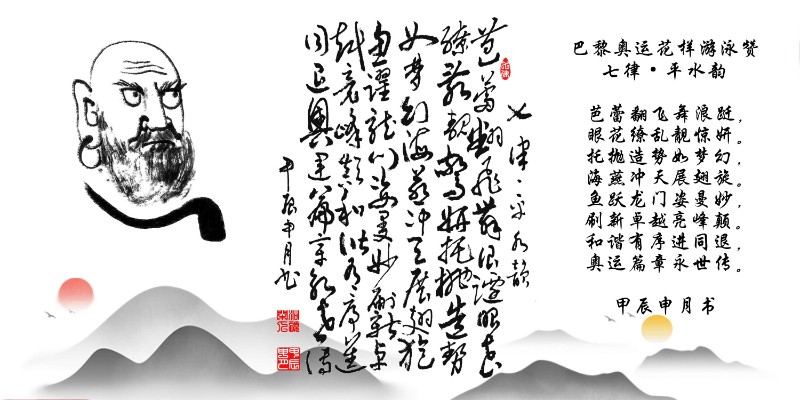 巴黎奥运花样游泳赞
七律•平水韵
芭蕾翻飞舞浪跹，
眼花缭乱靓惊妍。
托抛造势如梦幻，
海燕冲天展翅旋。
鱼跃龙门姿曼妙，
刷新卓越亮峰颠。
和谐有序进同退，
奥运篇章永世传。
甲辰申月书
七律·平水韵
芭蕾翻飞舞浪跹眼花
缭乱靓惊妍托抛造势
如梦幻海燕冲天展翅旋
鱼跃龙门姿曼妙刷新卓
越亮峰颠和谐有序进
同退奥运篇章永世传
甲辰申月书